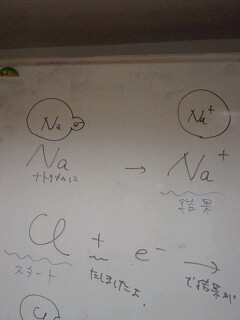 Na e⁻
Na⁺
Na → Na⁺
ナトリウム
結果
Cl + e⁻ →
スタート たしましたよ。 で結果が
Cl